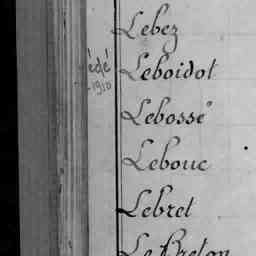 Lebez
édé
Leboidot
-1910
Lebossé
Lebouc
Lebret
Le Breton